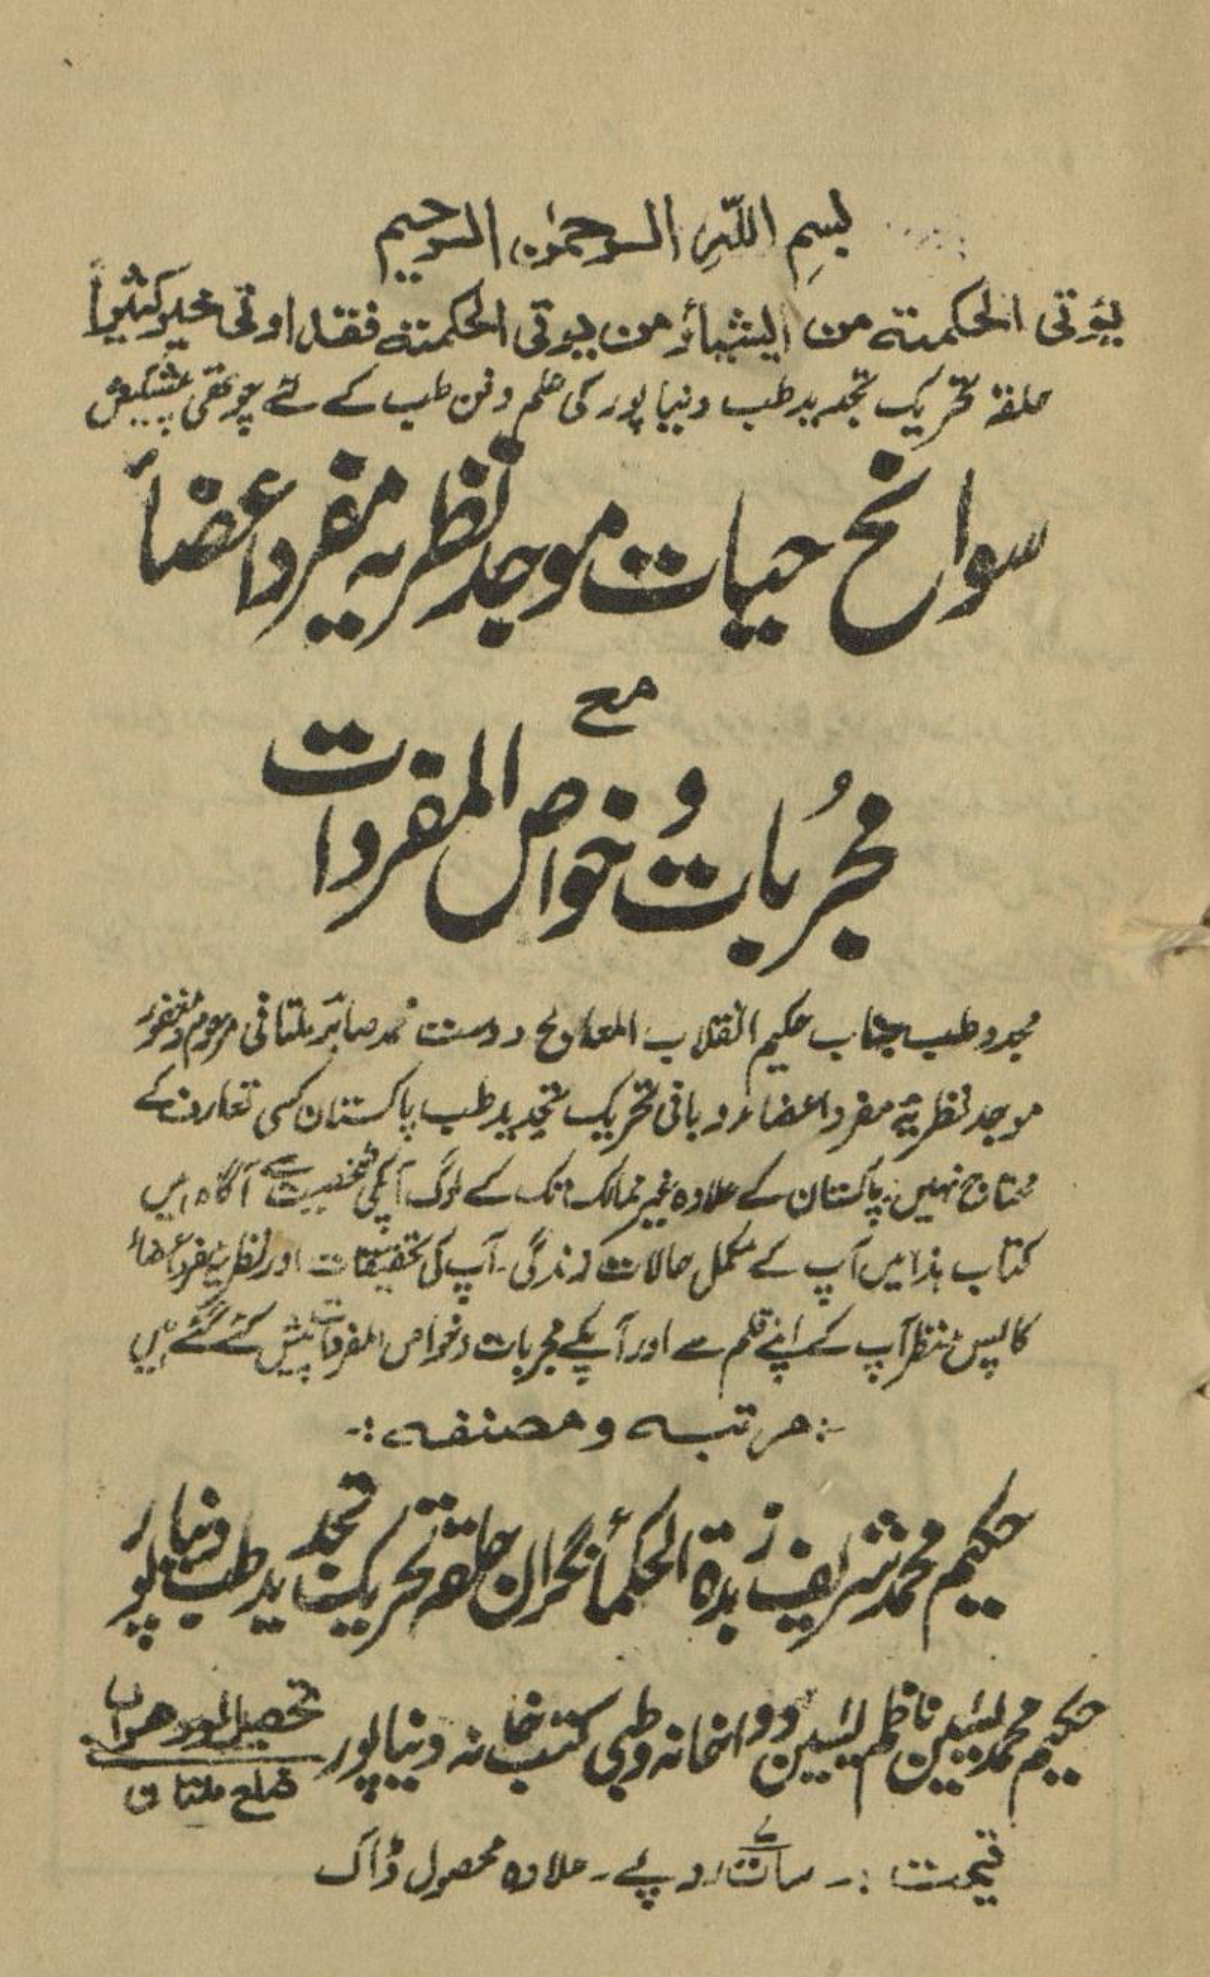 بسمِ اللّٰہِ الرحمٰن الرحیم
یؤتی الحکمتہ من الیشاءُ من یوتی الحکمتہ فقد اوتی خیرکثیراً
حلقہ تحریک تجدید طب دنیا پور کی علم و فن طب کے لئے چوتھی پیشکش
سوانح حیات موجد نظریہ مفرد اعضأ
مع
مجرُبات و خواص المفردات
مجدد طب جناب حکیم انقلاب المعالج دوست محمد صابر ملتانی مرحوم و مغفور
موجد نظریۂ مفرد اعضاء و بانی تحریک تجدید طب پاکستان کسی تعارف کے
محتاج نہیں پاکستان کے علاوہ غیر ممالک تک کے لوگ آپکی شخصیت سے آگاہ ہیں
کتاب ہذا میں آپ کے مکمل حالات زندگی۔ آپ کی تحقیقات اور نظریۂ مفرد اعضاء
کا پس منظر آپ کے اپنے قلم سے اور آپکے مجربات و خواص المفردات پیش کئے گئے ہیں
:۔ مرتبہ و مصنفہ ۔:
حکیم محمد شریف زبدۃ الحکمأ نگران حلقہ تحریک تجدید طب دنیا پور
حکیم محمد یٰسین ناظم یٰسین دواخانہ و طبی کتب خانہ دنیا پور تحصیل لودھراں
ضلع ملتان
قیمت :۔ سات ۷ روپے ۔ علاوہ محصول ڈاک